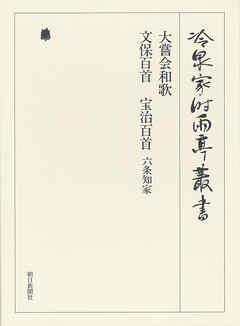 冷泉家時雨亭叢書
大嘗会和歌
文保百首　宝治百首 六条知家
朝日新聞社